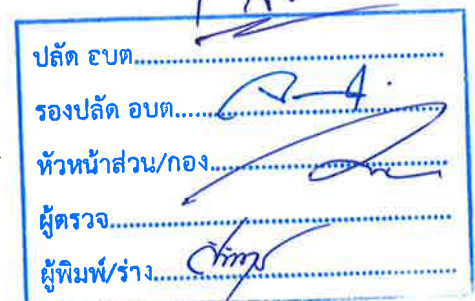 ปลัด อบต....................
รองปลัด อบต....................
หัวหน้าส่วน/กอง....................
ผู้ตรวจ....................
ผู้พิมพ์/ร่าง....................